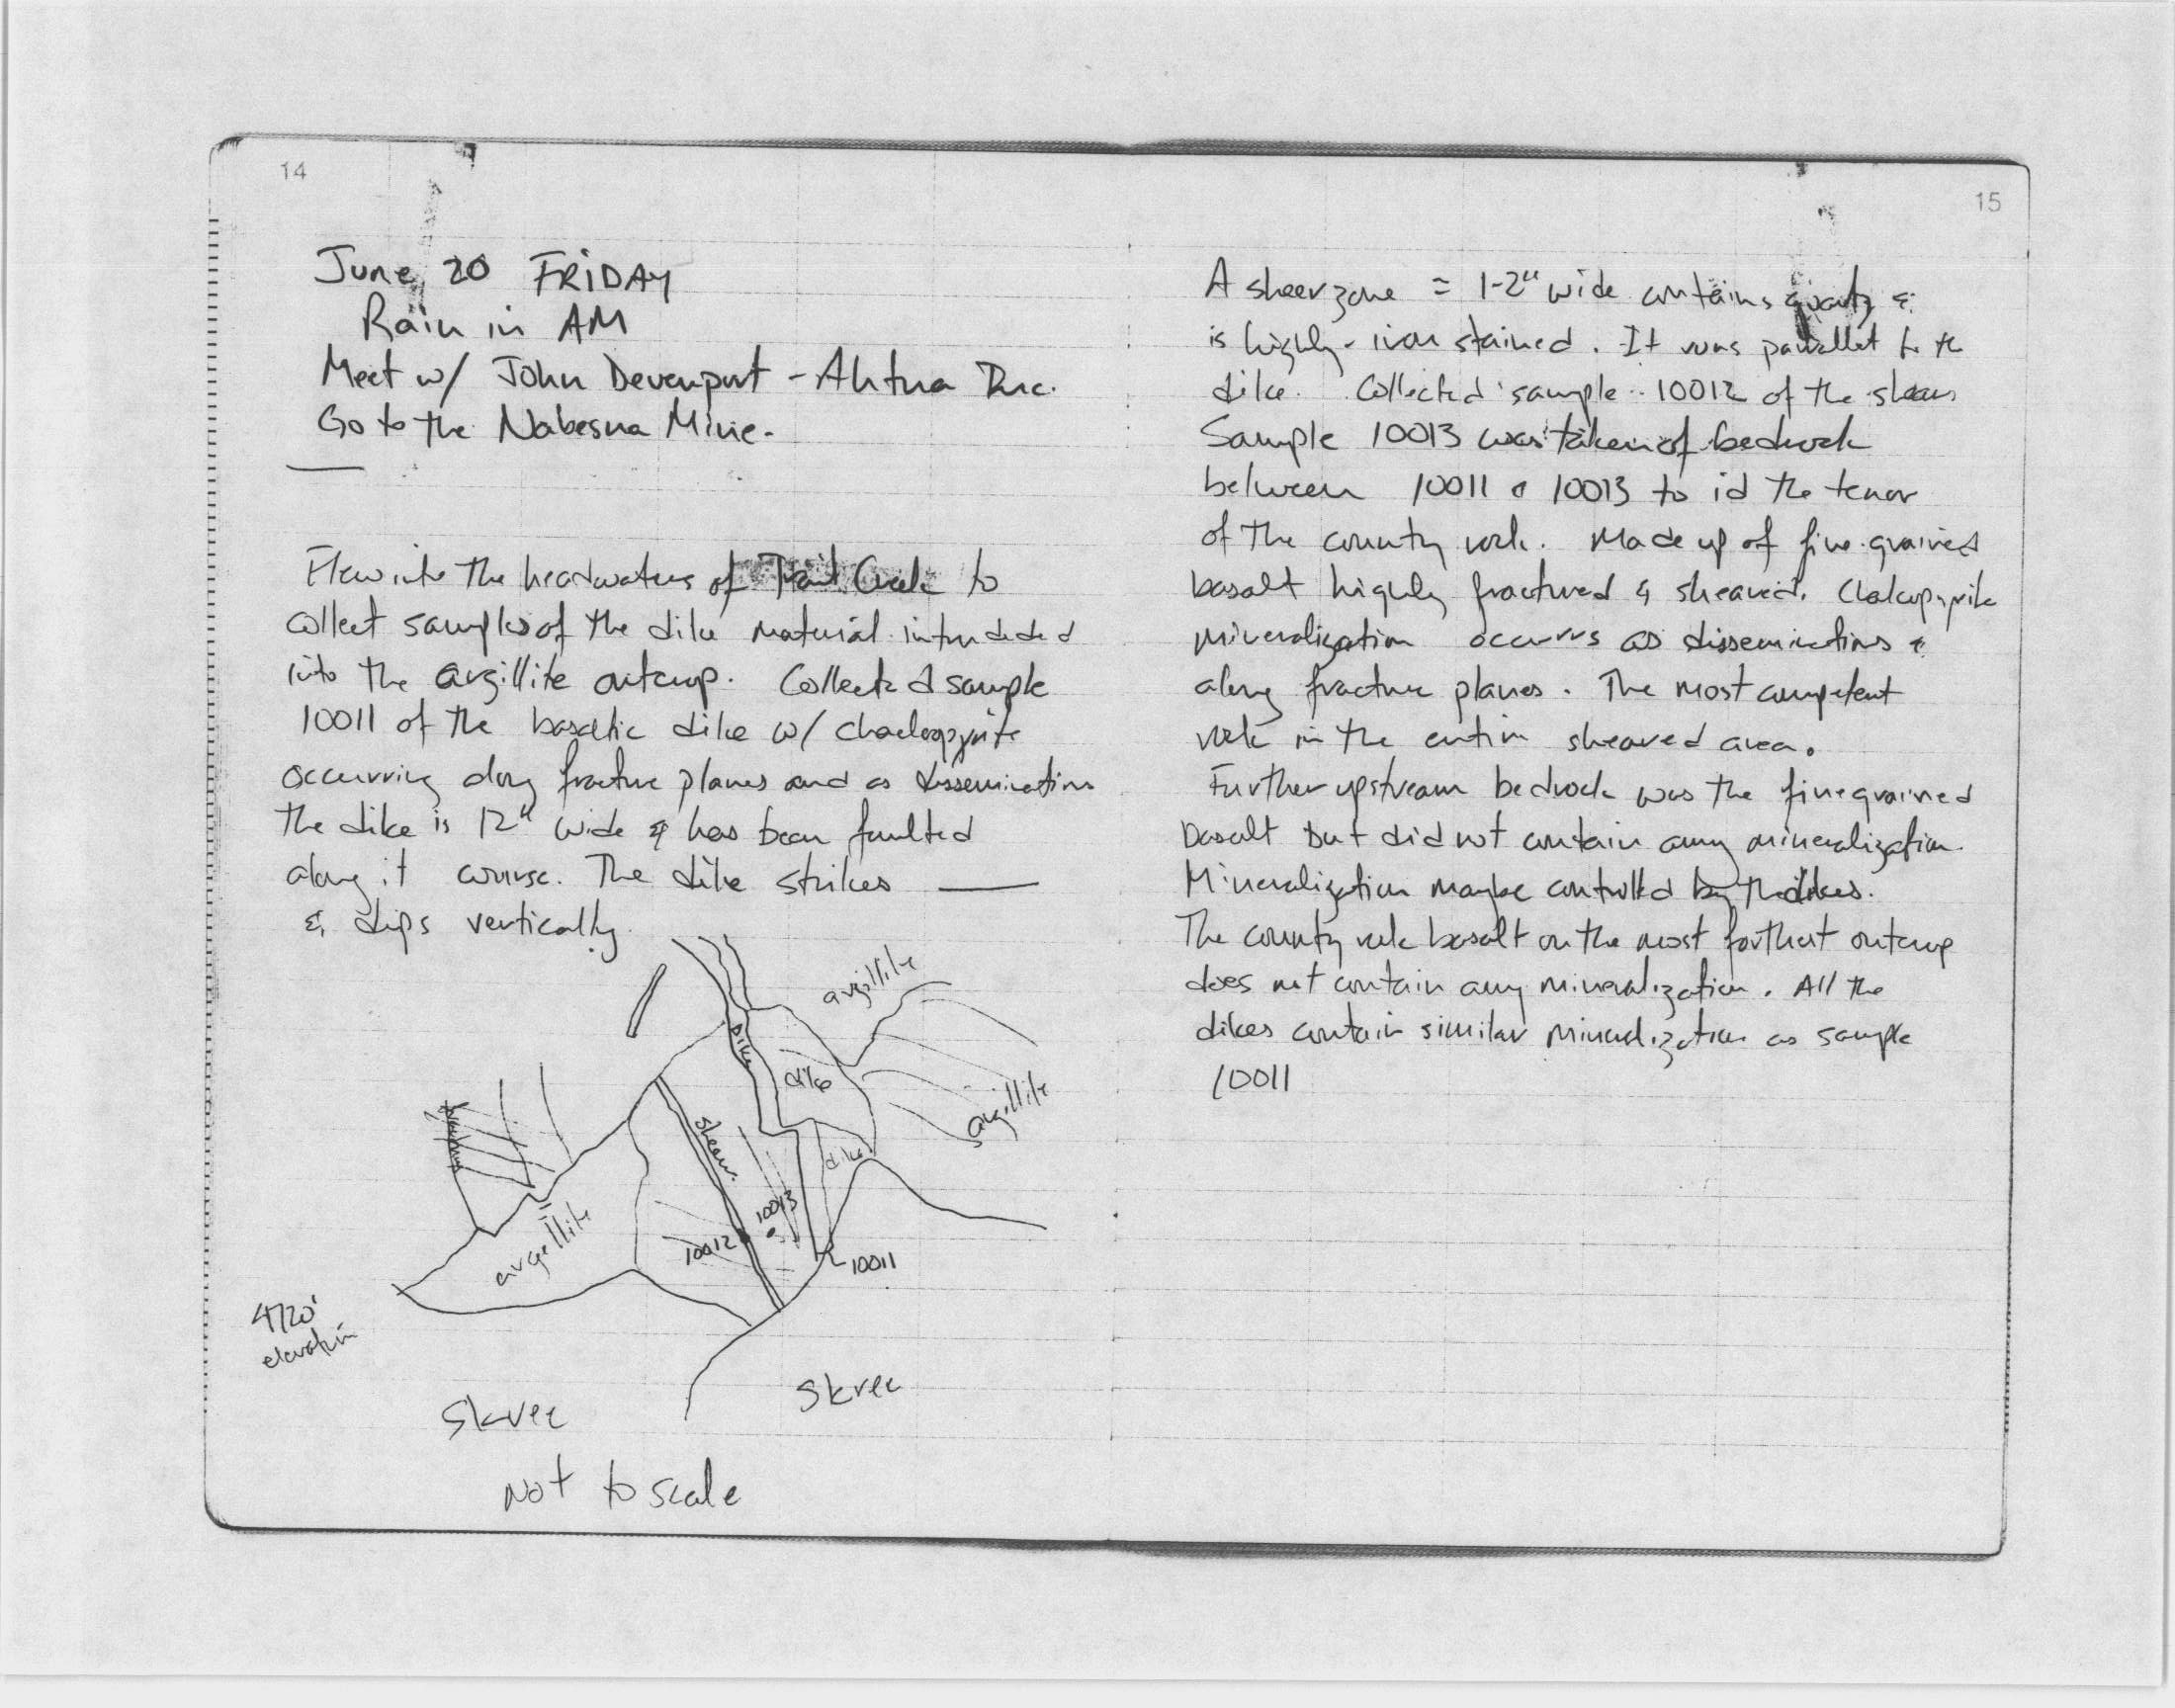 14
June 20 FRIDAY
Rain in AM
Meet w/ John Devenport - Ahtna Inc.
Go to the Nabesna Mine.
Flew into the headwaters of Trail Creek to
collect samples of the dike material intrudeded
into the argillite outcrop. Collected sample
10011 of the basaltic dike w/
occurring along fracture planes and as disseminations
The dike is 12" wide & has been faulted
along it course. The dike strikes ——
& dips vertically.
argillite
dike
dike
argillite
shear
dike
10013
10012
10011
argellite
4720'
elevation
Skree
Skree
Not to scale
15
A sheer zone = 1-2" wide contains quartz &
is highly-iron stained. It runs parallel to the
dike. Collected sample 10012 of the shear
Sample 10013 was taken of bedrock
between 10011 & 10013 to id the tenor
of the country rock. Made up of fine-grained
basalt highly fractured & sheared. Chalcopyrite
mineralization occurrs as disseminations &
along fracture planes. The most competent
rock in the entire sheared area.
Further upstream bedrock was the fine grained
basalt but did not contain any mineralization.
Mineralization maybe controlled by the dikes.
The country rock basalt on the most farthest outcrop
does not contain any mineralization. All the
dikes contain similar mineralization as sample
10011